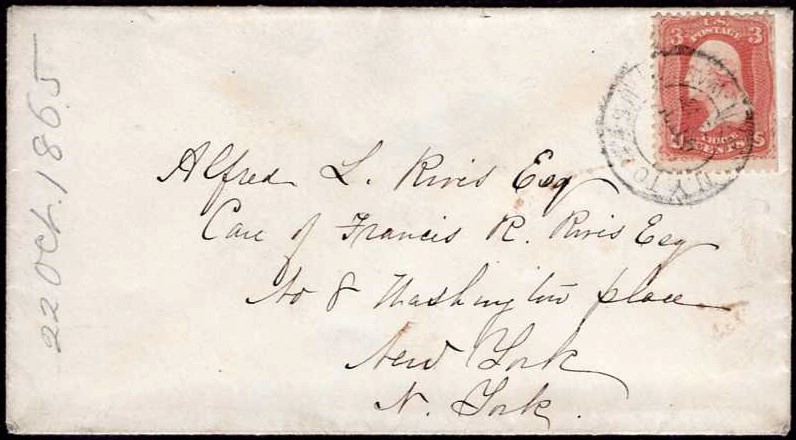 22 Oct. 1865
U.S.
POSTAGE
3 3
THREE
CENTS
Alfred L. Rives Esq
Care of Francis R. Rives Esq
No 8 Washington place
New York
N. York.